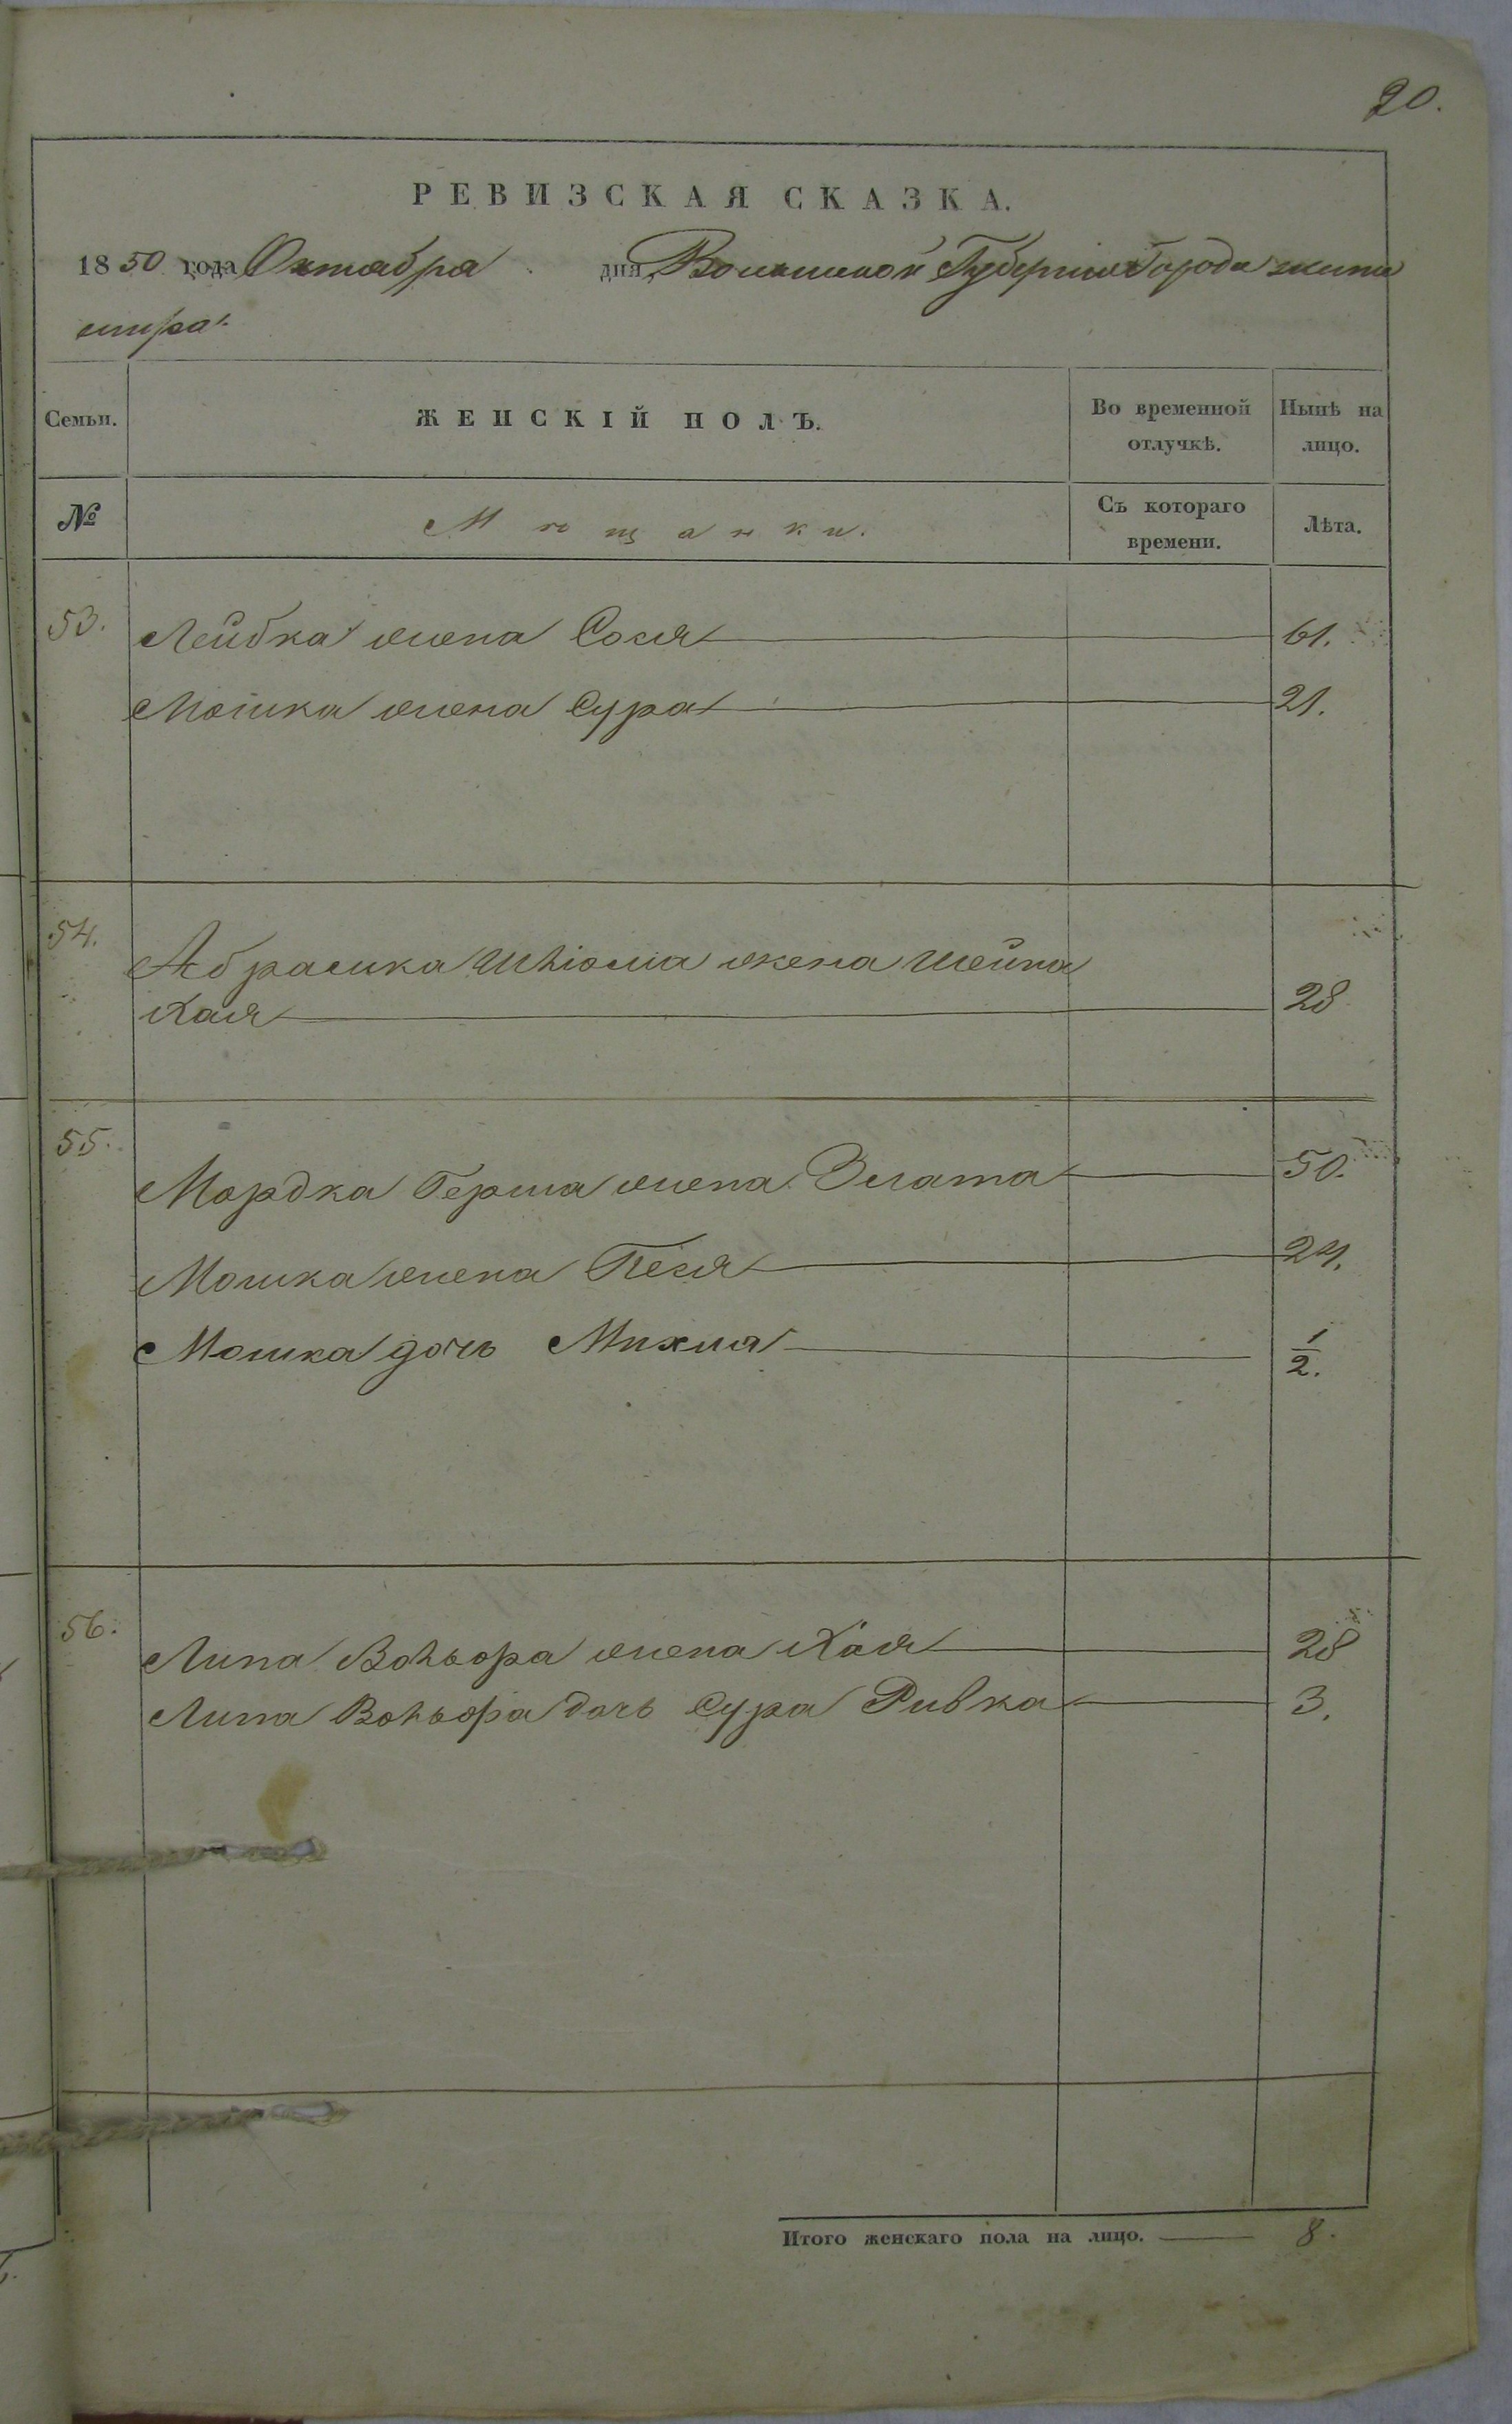 20.
РЕВИЗСКАЯ СКАЗКА.
1850 года Октабра дня, Волынской Губерніи Города жито
мира.
Семьи. ЖЕНСКІЙ ПОЛЪ. Во временной отлучкѣ. Нынѣ на лицо.
№ Мѣщанки. Съ котораго времени. Лѣта.
53. Лейбка жена Сося 61.
Мошка жена Сура 21.
54. Абрамка Шліома жена Шейна
Хая 28
55. Мордка Герша жена Злата 50.
Мошка жена Песя 24.
Мошка дочь Михля 1/2.
56. Липа жена Хая 28
Липа дочь Сура Ривка 3.
Итого женскаго пола на лицо. 8.